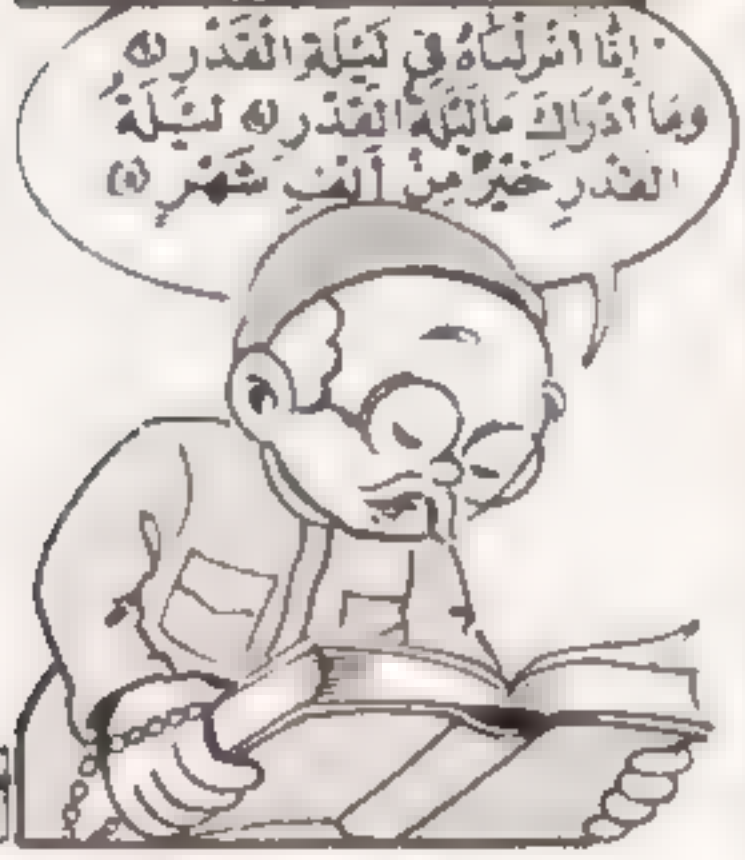 إِنَّا أَنْزَلْنَاهُ فِي لَيْلَةِ الْقَدْرِ ﴿١﴾
وَمَا أَدْرَاكَ مَا لَيْلَةُ الْقَدْرِ ﴿٢﴾ لَيْلَةُ
الْقَدْرِ خَيْرٌ مِنْ أَلْفِ شَهْرٍ ﴿٣﴾